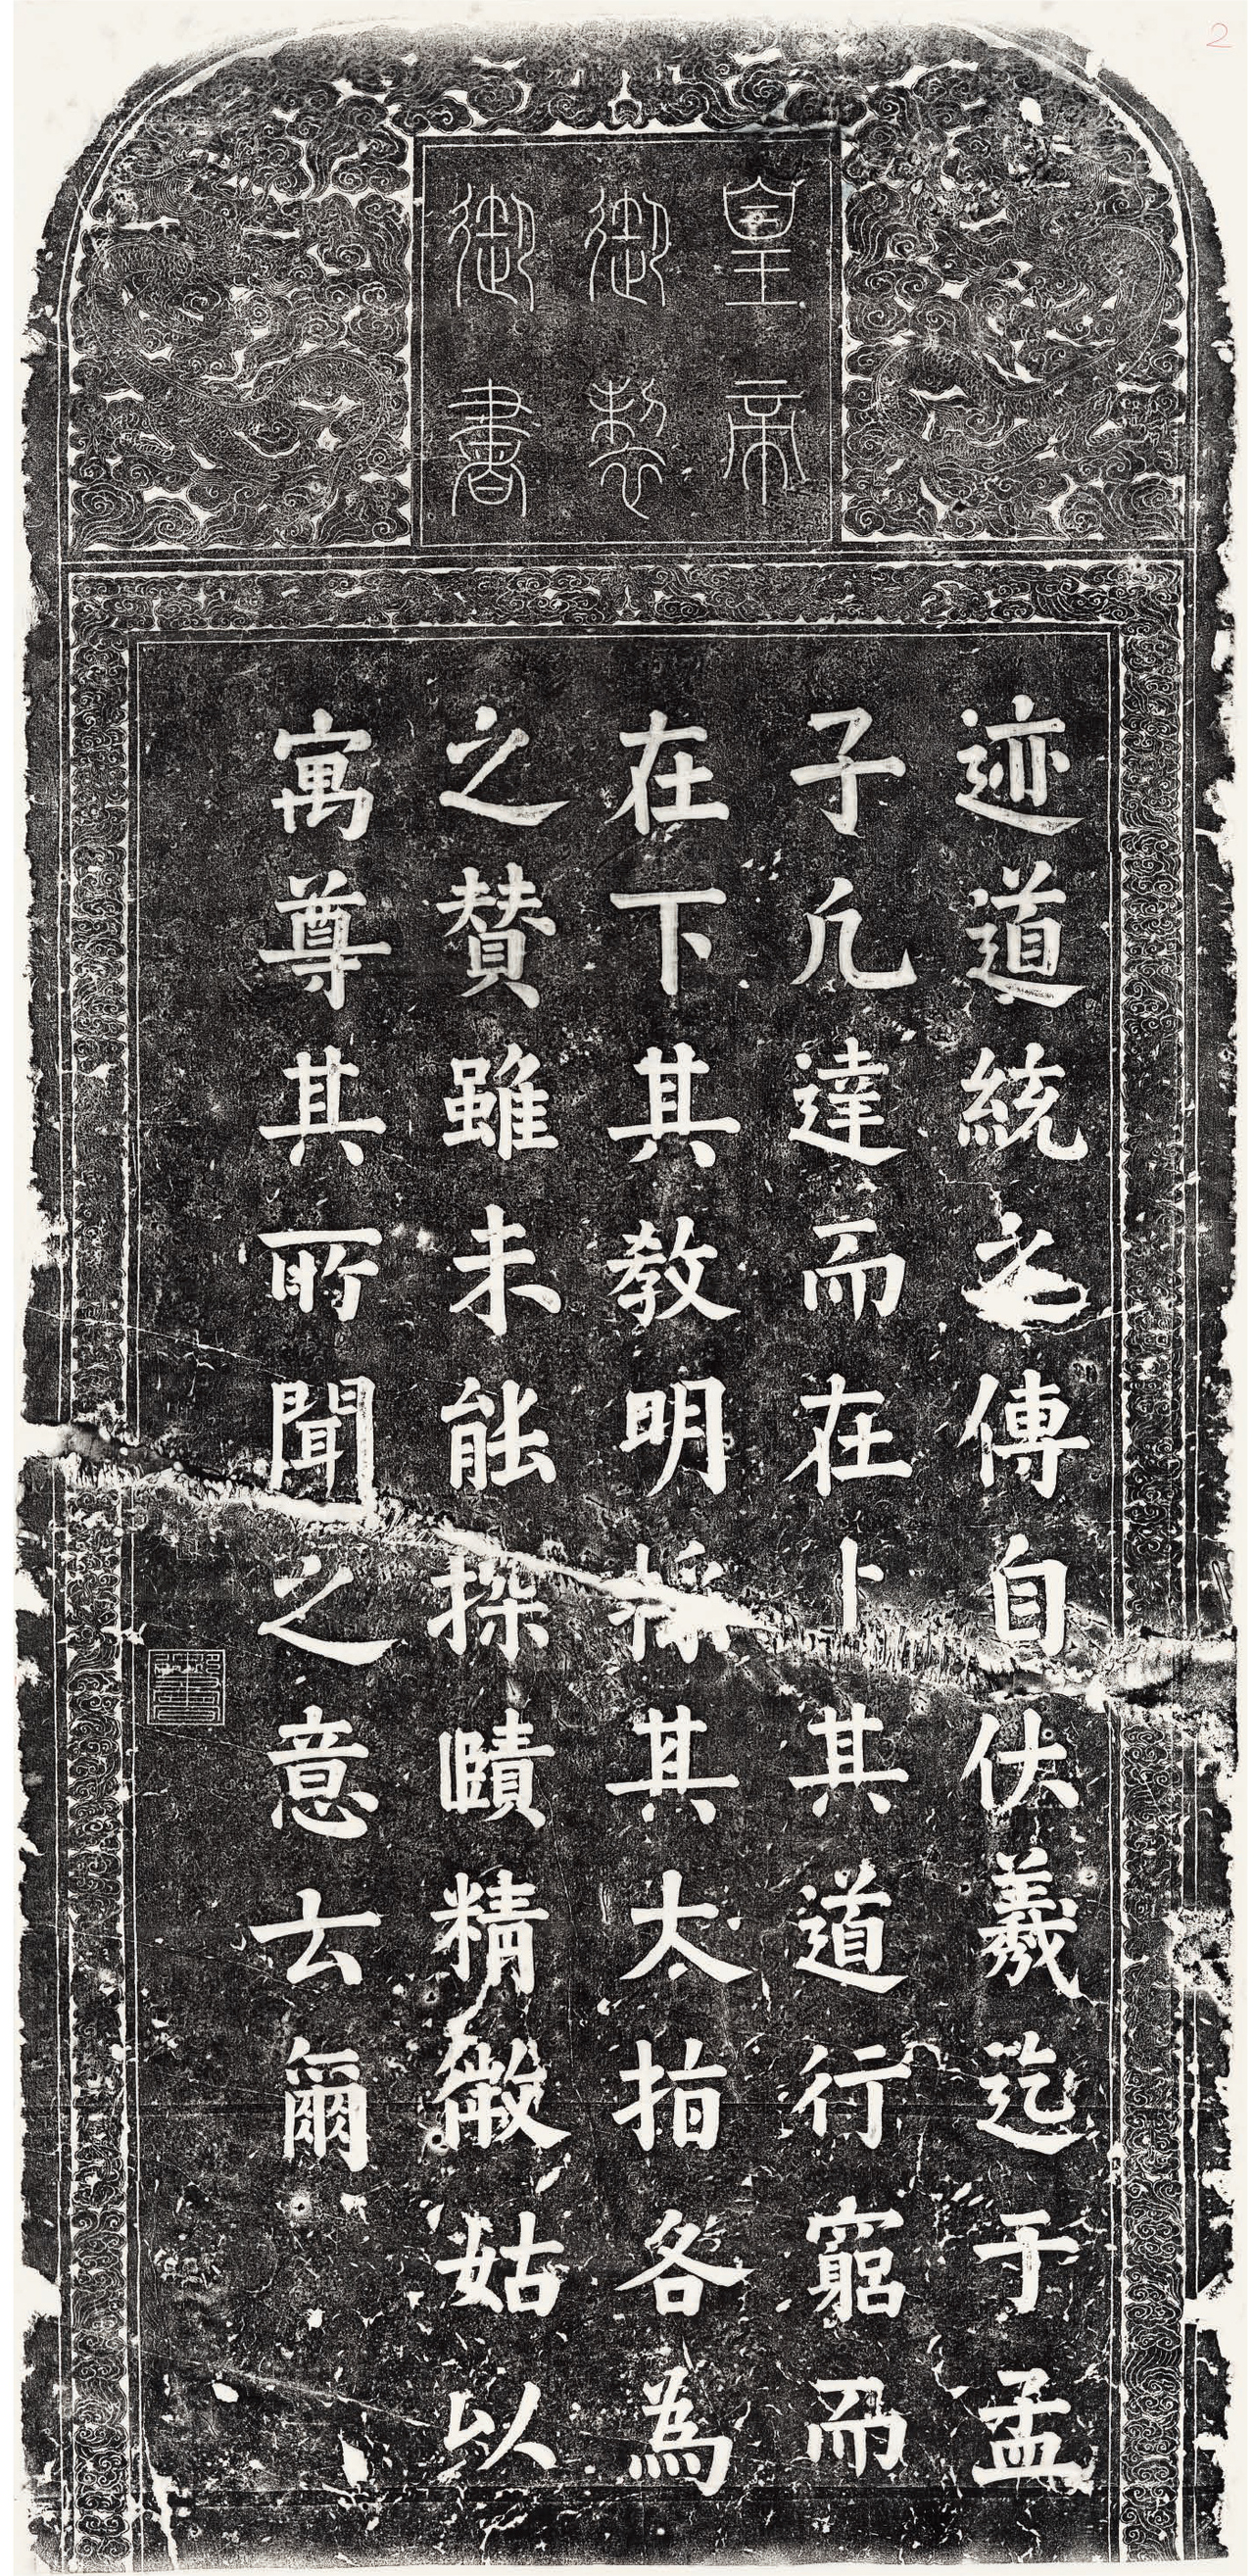 2
皇帝
御製
御書
迹道統之傳自伏羲迄于孟
子凡達而在上其道行窮而
在下其教明採其大指各為
之賛雖未能探賾精微姑以
寓尊其所聞之意云爾
御書